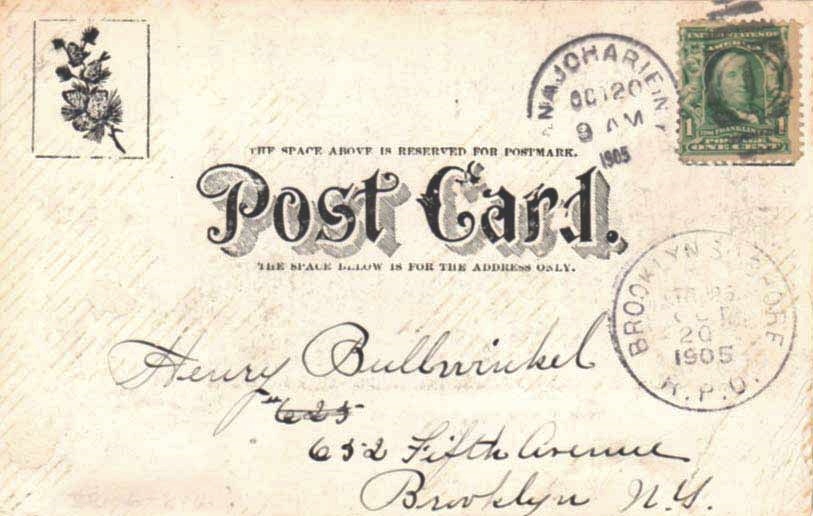 NAJOHARIE N.Y.
OCT 20
9 AM
1905
UNITED STATES OF
AMERICA
1 FRANKLIN
ONE CENT
THE SPACE ABOVE IS RESERVED FOR POSTMARK.
Post Card.
THE SPACE BELOW IS FOR THE ADDRESS ONLY.
BROOKLYN SHORE
20
1905
R.P.O.
Henry Bullwinkel
625
652 Fifth Avenue
Brooklyn N.Y.